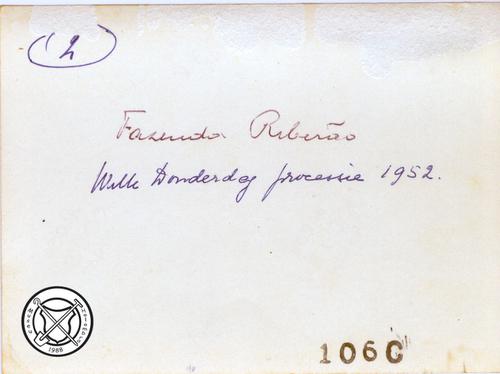 (2)
Fazenda Ribeirão
Witte Donderdag processie 1952.
1988
106C